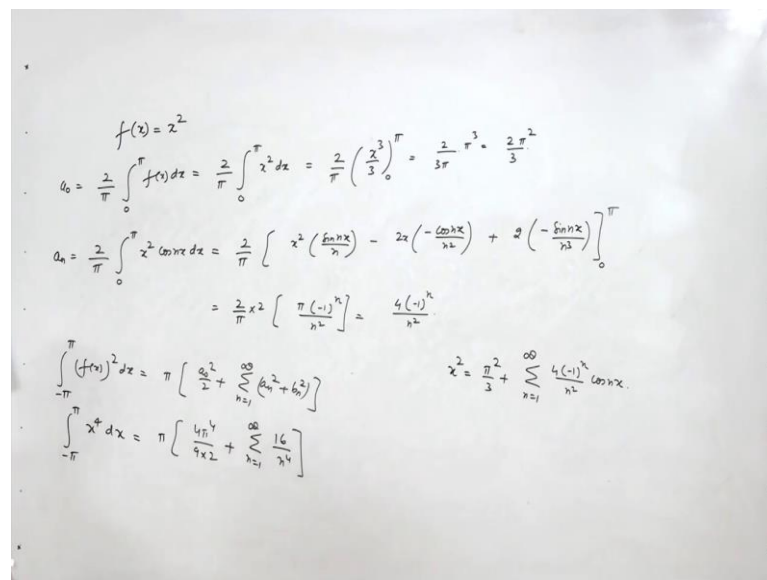 f(x) = x²
a₀ = 2/π ∫₀^π f(x) dx = 2/π ∫₀^π x² dx = 2/π (x³/3)₀^π = 2/3π π³ = 2π²/3
aₙ = 2/π ∫₀^π x² cosnx dx = 2/π [ x² (sinnx/n) - 2x (-cosnx/n²) + 2 (-sinnx/n³) ]₀^π
= 2/π × 2 [ π(-1)ⁿ/n² ] = 4(-1)ⁿ/n²
∫_{-π}^π (f(x))² dx = π [ a₀²/2 + ∑_{n=1}^∞ (aₙ² + bₙ²) ]
x² = π²/3 + ∑_{n=1}^∞ 4(-1)ⁿ/n² cosnx.
∫_{-π}^π x⁴ dx = π [ 4π⁴/9×2 + ∑_{n=1}^∞ 16/n⁴ ]